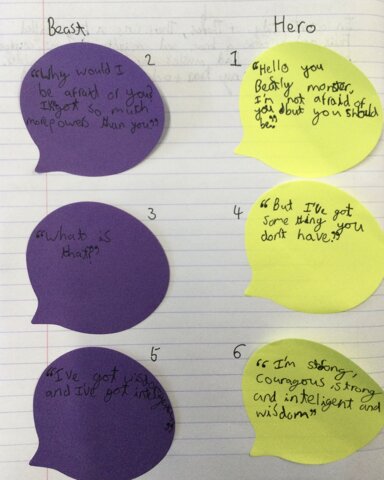 Beast
Hero
1
"Hello you
Beatly monster,
I'm not afraid of
you but you should
be"
2
"Why would I
be afraid of you?
I've got so much
more powers than you"
3
"what is
that?"
4
"But I've got
some thing you
don't have."
5
"I've got
and I've got
6
"I'm strong,
Couragous is strong
and inteligent and
wisdom"